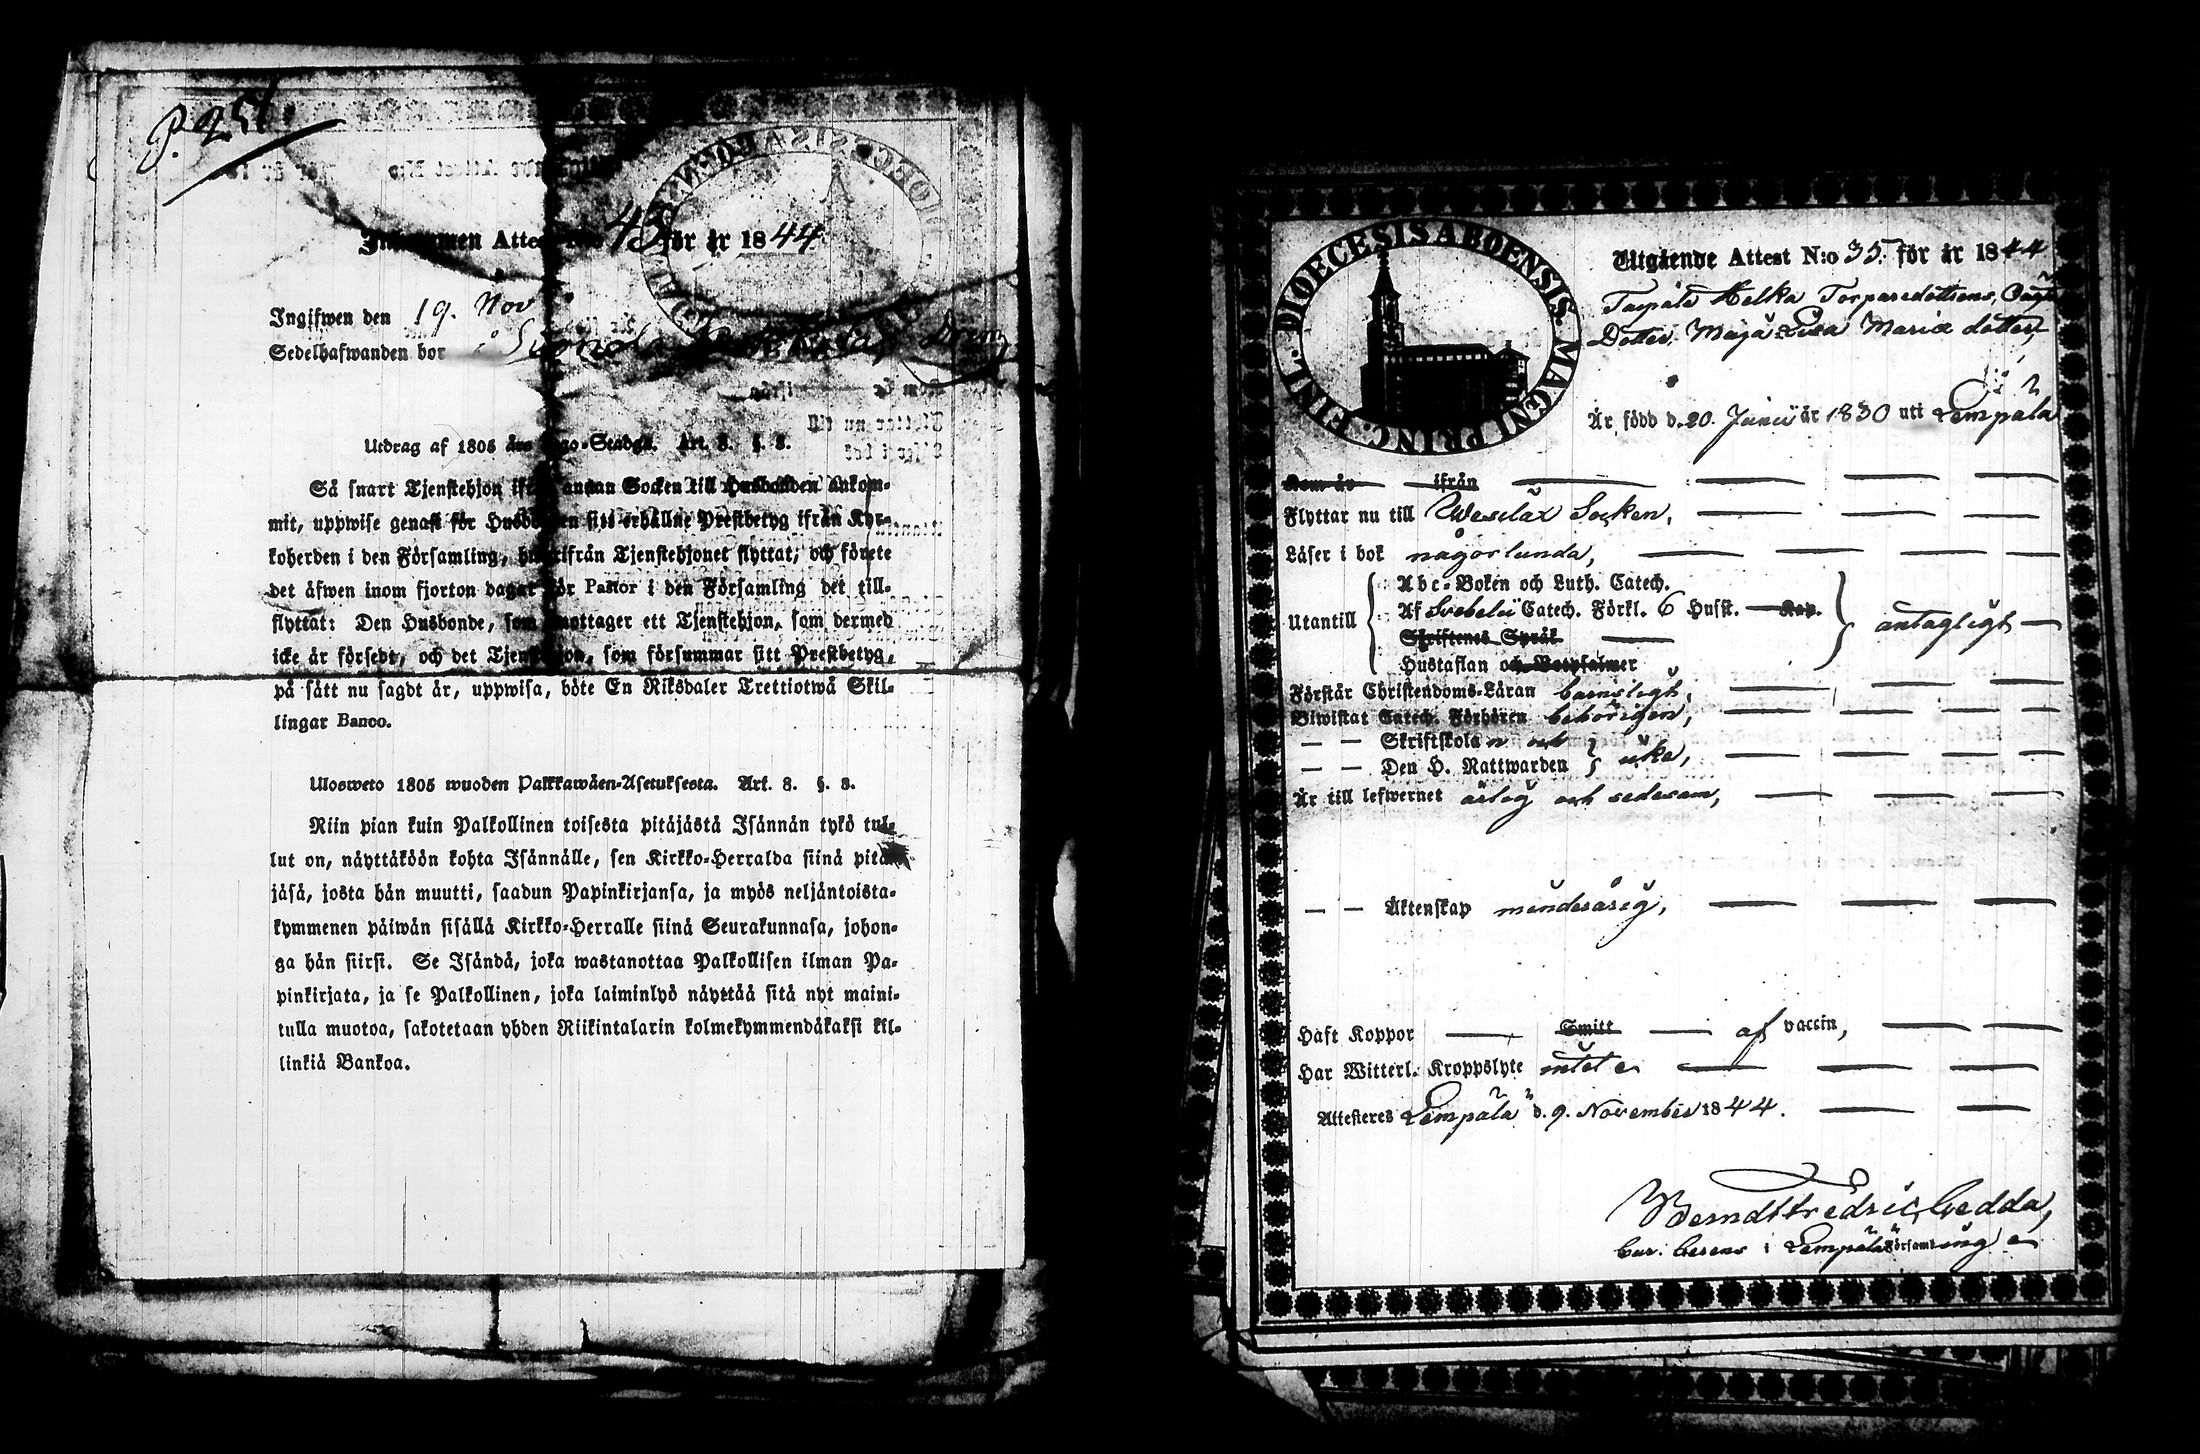 p. 251.
Inkommen Attest N:o 45 för år 1844
Ingifwen den 19. Nov
Sedelhafwanden bor i
Utdrag af 1805 års Lego-Stadga. Art. 8. §. 8.
Så snart Tjenstehjon ifrån annan Socken till Husbonden ankom-
mit, uppwise genast för Husbonden sitt erhållne Prestbetyg ifrån Kyr-
koherden i den Församling, hwarifrån Tjenstehjonet flyttat; och förete
det äfwen inom fjorton dagar för Pastor i den Församling det till-
flyttat: Den Husbonde, som emottager ett Tjenstehjon, som dermed
icke är försedt, och det Tjenstehjon, som försummar sitt Prestbetyg,
på sätt nu sagdt är, uppwisa, böte En Riksdaler Trettiotwå Skil-
lingar Banco.
Ulosweto 1805 wuoden Palkkawäen-Asetuksesta. Art. 8. §. 8.
Niin pian kuin Palkollinen toisesta pitäjästä Isännän tykö tul-
lut on, näyttäköön kohta Isännälle, sen Kirkko-Herralda siinä pitä-
jäsä, josta hän muutti, saadun Papinkirjansa, ja myös neljäntoista-
kymmenen päiwän sisällä Kirkko-Herralle siinä Seurakunnasa, johon-
ga hän siirsi. Se Isändä, joka wastanottaa Palkollisen ilman Pa-
pinkirjata, ja se Palkollinen, joka laiminlyö näyttää sitä nyt maini-
tulla muotoa, sakotetaan yhden Riikintalarin kolmekymmendäkaksi kil-
linkiä Bankoa.
DIOECESIS ABOENSIS. MAGNI PRINC. FINL.
Utgående Attest N:o 35. för år 1844
Helka Torparedottrens,
Dotter, Maja Lisa Mariæ dotter,
Är född d. 20. Junii år 1830 uti Lempälä
Kom år ifrån
Flyttar nu till Wesilax Socken,
Läser i bok någorlunda,
Utantill
Abc-Boken och Luth. Catech.
Af Svebelii Catech. Förkl. 6 Hufst. Kap.
Skriftenes Språk
Hustaflan och Botpsalmer
antagligt
Förstår Christendoms-Läran barnsligt,
Biwistat Catech. Förhören behörigen,
— — Skriftskolan och
— — Den H. Nattwarden
icke,
Är till lefwernet ärlig och sedesam,
— — Äktenskap minderårig,
Haft Koppor Smitt af vaccin,
Har Witterl. Kroppslyte intet
Attesteres Lempälä d. 9. November 1844.
Berndt Fredric Gedda,
i Lempälä Församling